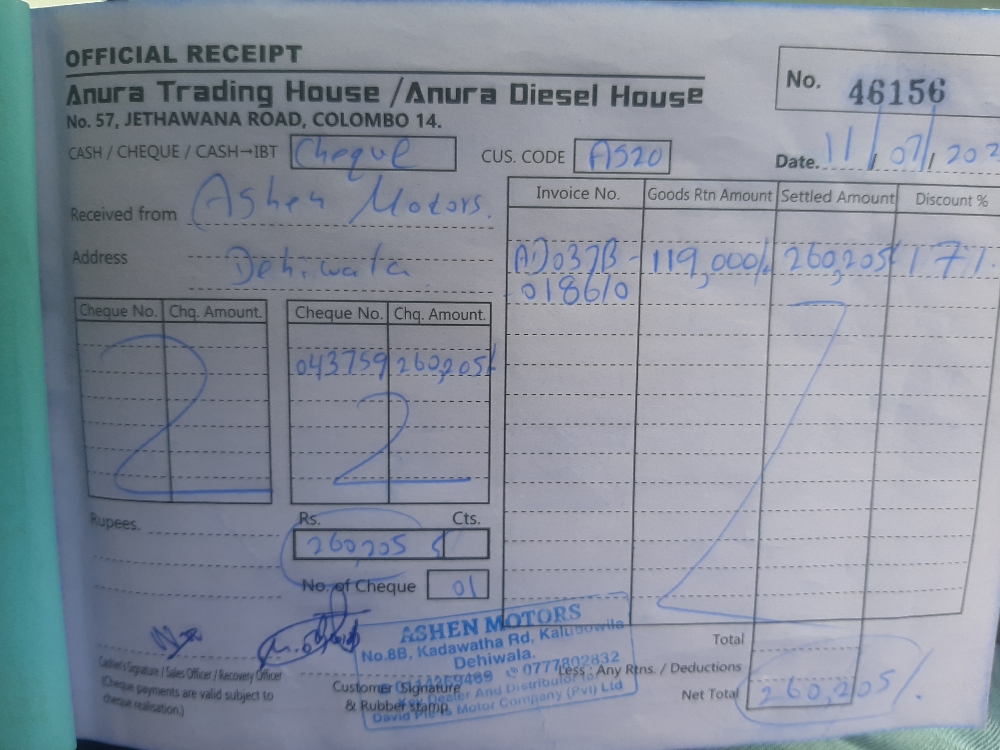 OFFICIAL RECEIPT
Anura Trading House /Anura Diesel House
No. 57, JETHAWANA ROAD, COLOMBO 14.
No. 46156
CASH / CHEQUE / CASH→IBT Cheque
CUS. CODE AS20
Date. 11 / 07 / 202
Received from Ashen Motors.
Address Dehiwala
Invoice No. Goods Rtn Amount Settled Amount Discount %
AD037B - 119,000/= 260,205/ 17%
-018610
Cheque No. Chq. Amount. Cheque No. Chq. Amount.
043759 260,205/
Rupees.
Rs. Cts.
260,205
No. of Cheque 01
Total
Less : Any Rtns. / Deductions
Net Total 260,205/.
Cashier's Signature / Sales Officer / Recovery Officer
(Cheque payments are valid subject to
cheque realisation.)
Customer Signature
& Rubber stamp
ASHEN MOTORS
No.8B, Kadawatha Rd, Kalubowila
Dehiwala.
0777802832
Dealer And Distributor
David Motor Company (Pvt) Ltd